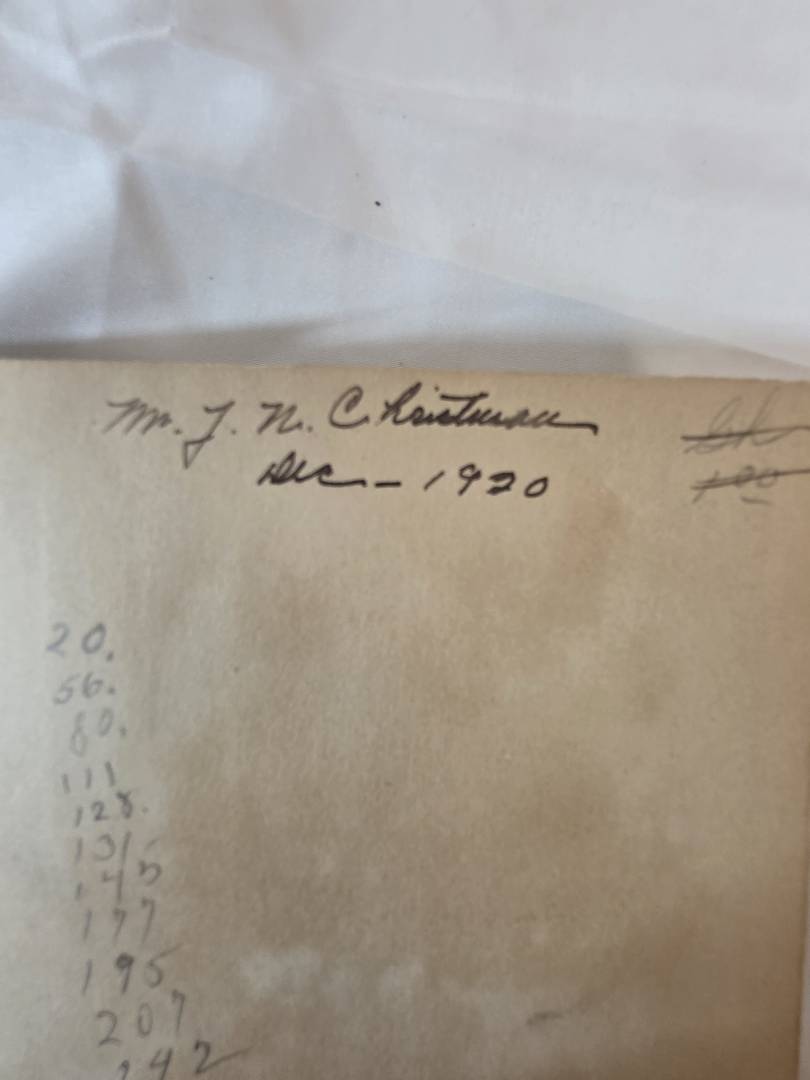 Mr. J. N. Christman
Dec – 1920
1.00
20.
56.
80.
111
128.
131-
145
177
195
207
242